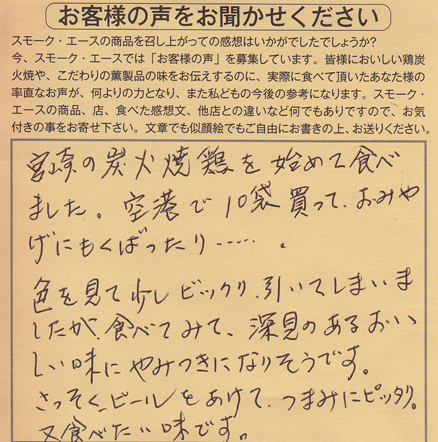 お客様の声をお聞かせください
スモーク・エースの商品を召し上がっての感想はいかがでしたでしょうか?
今、スモーク・エースでは「お客様の声」を募集しています。皆様においしい鶏炭
火焼や、こだわりの薫製品の味をお伝えするのに、実際に食べて頂いたあなた様の
率直なお声が、何よりの力となり、また私どもの今後の参考になります。スモーク・
エースの商品、店、食べた感想文、他店との違いなど何でもありですので、お気
付きの事をお寄せ下さい。文章でも似顔絵でもご自由にお書きの上、お送りください。
宮崎の炭火焼鶏を始めて食べ
ました。空港で10袋買って、おみや
げにもくばったり……。
色を見て少しビックリ、引いてしまいま
したが、食べてみて、深見のあるおい
しい味にやみつきになりそうです。
さっそく、ビールをあけて、つまみにピッタリ。
又食べたい味です。